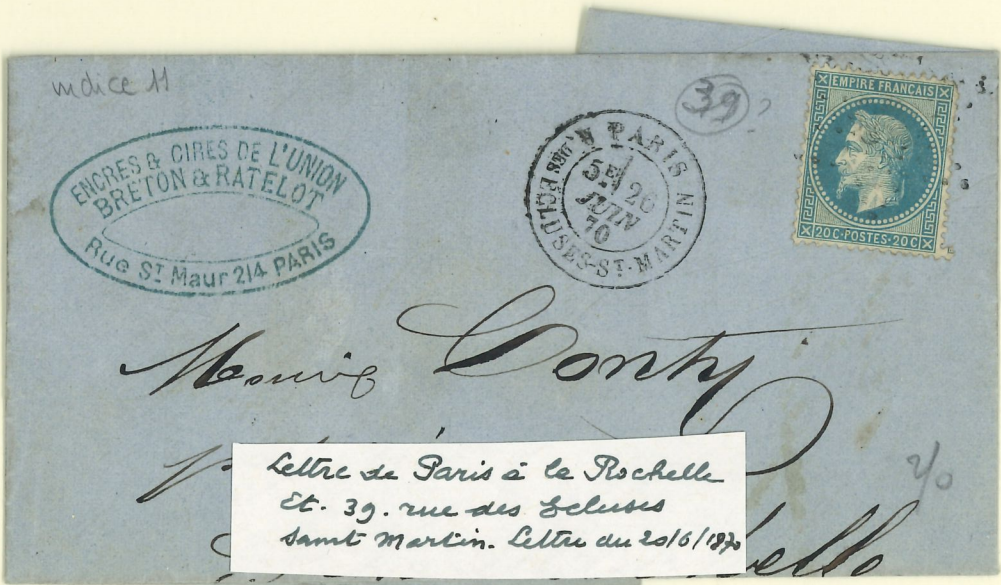 indice 11
39
?
ENCRES & CIRES DE L'UNION
BRETON & RATELOT
Rue St Maur 214 PARIS
PARIS
R. DES ECLUSES-ST-MARTIN
5E
20
JUIN
70
EMPIRE FRANÇAIS
20C·POSTES·20C
Conty
Lettre de Paris à la Rochelle
Et. 39. rue des Ecluses
Saint Martin. Lettre du 20/6/1870